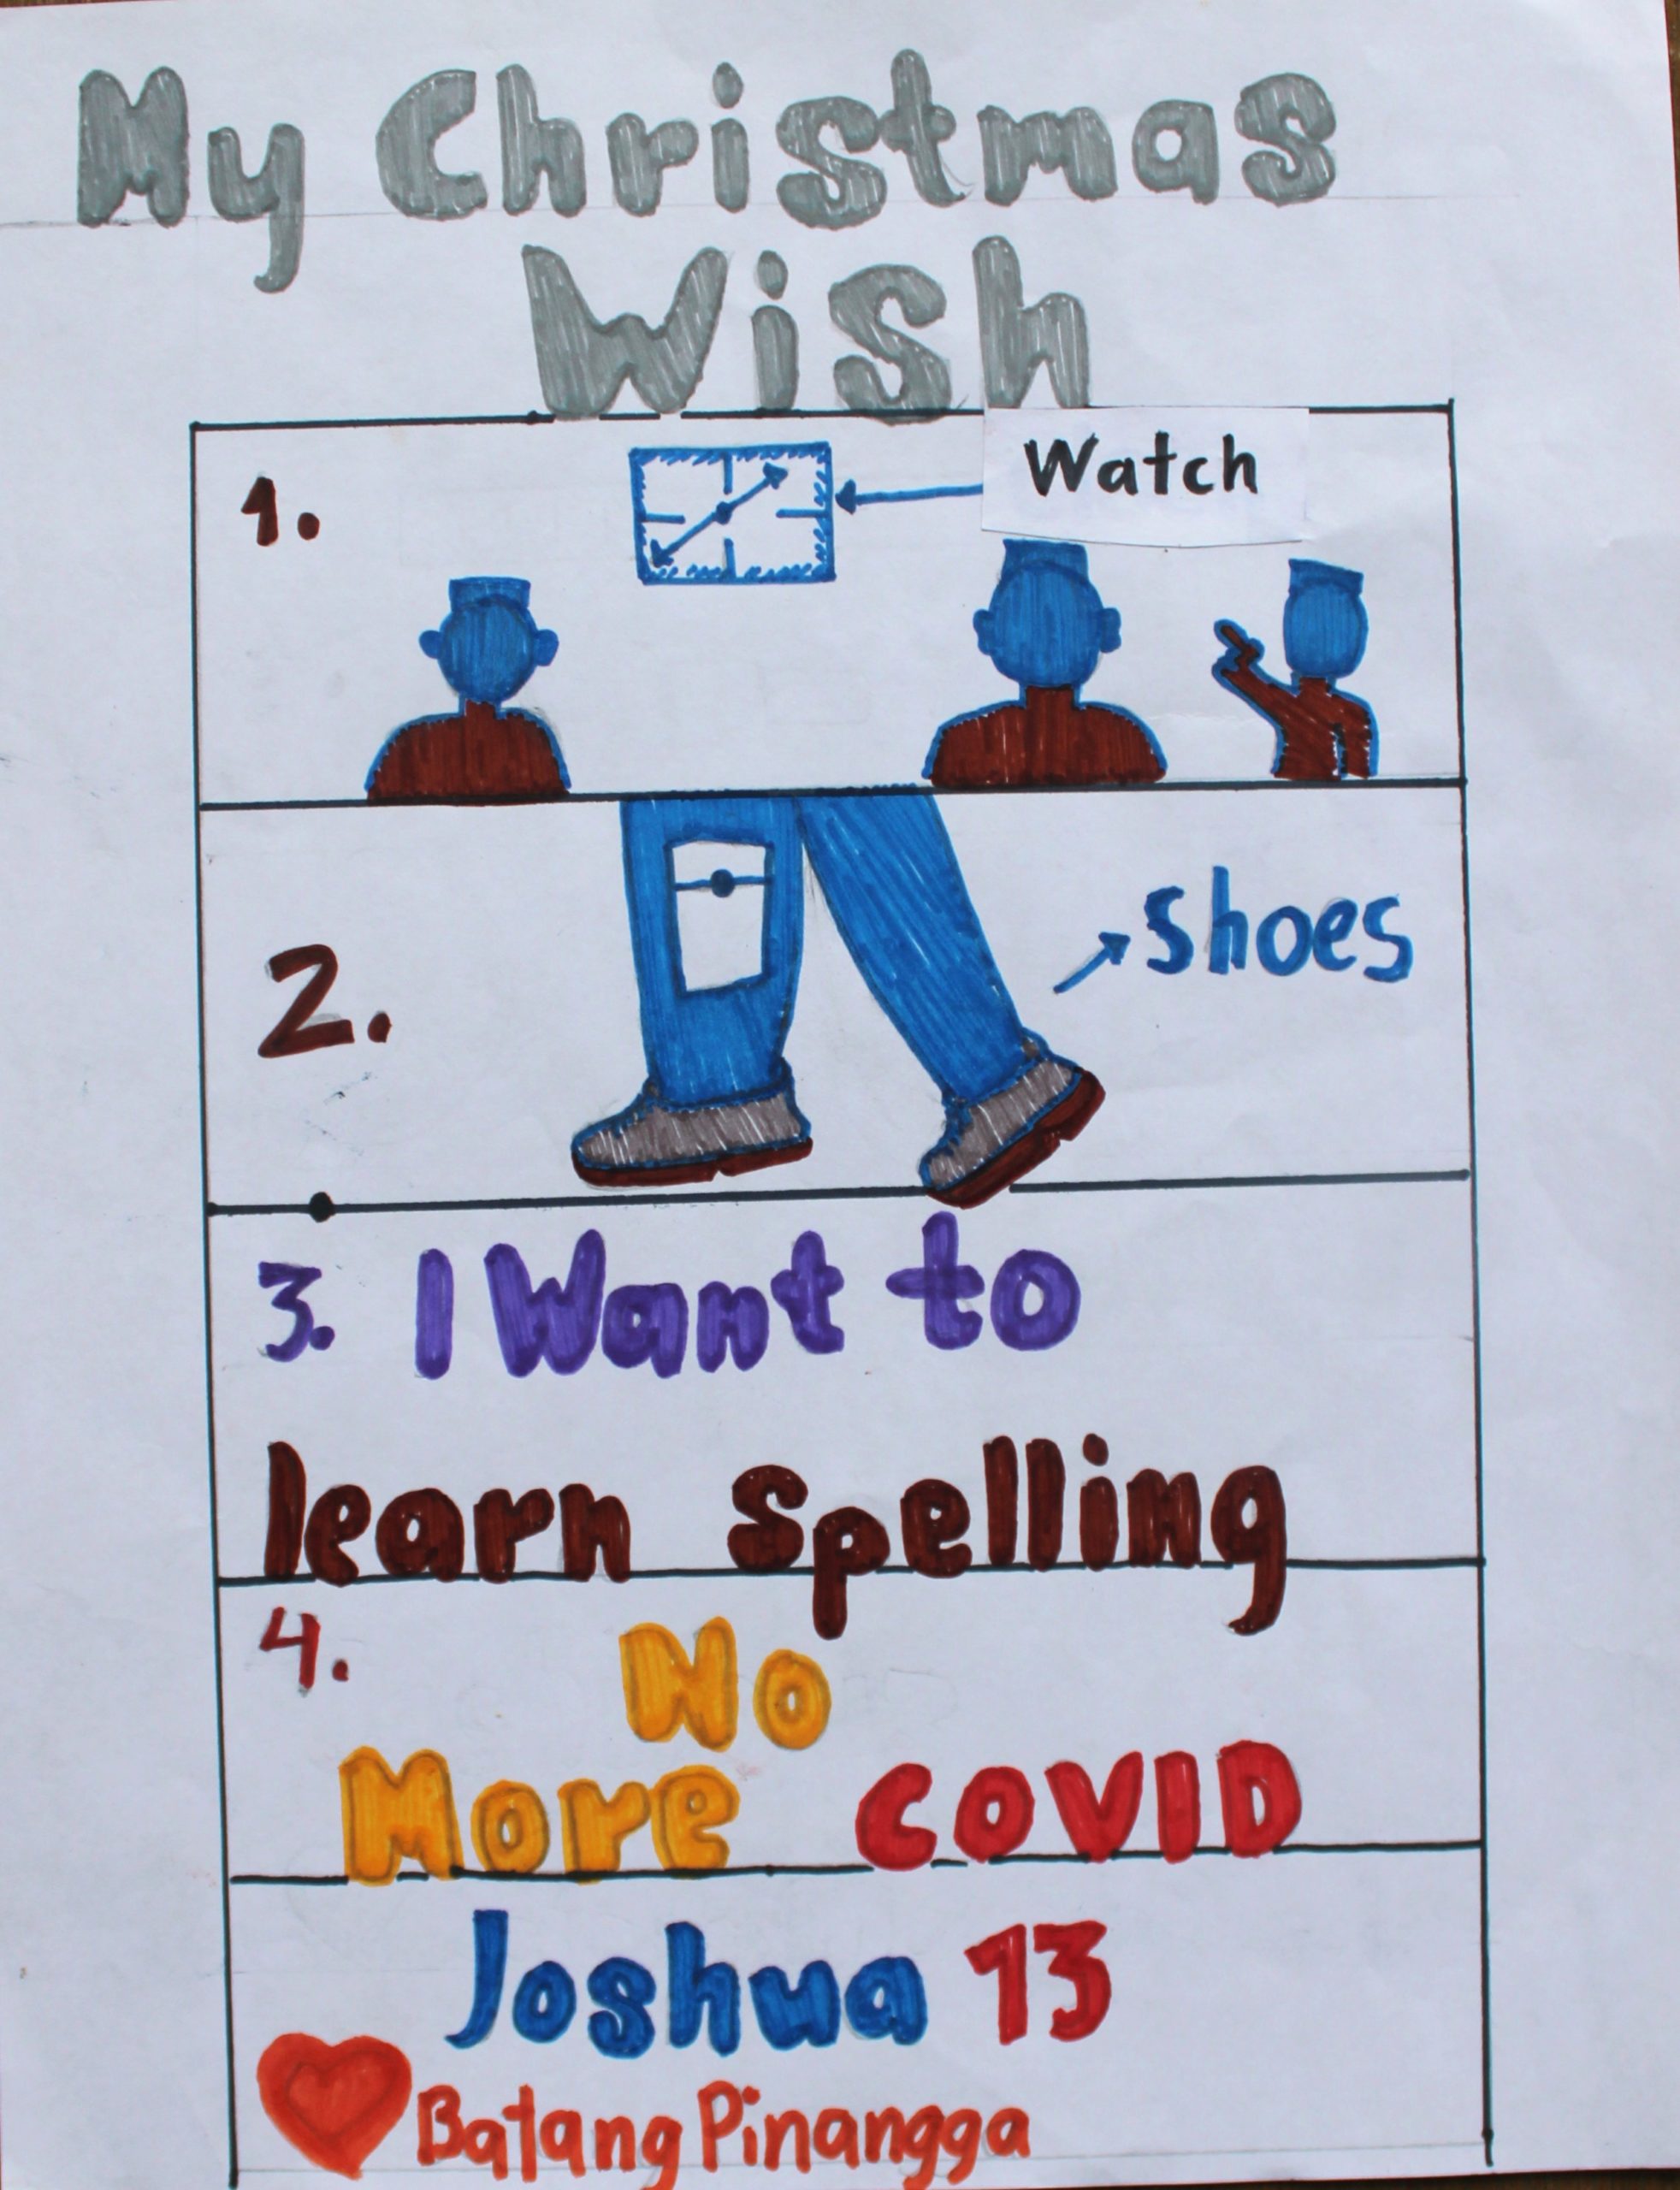 My Christmas
Wish
1.
Watch
2.
shoes
3. I Want to
learn Spelling
4.
No
More COVID
Joshua 13
Batang Pinangga